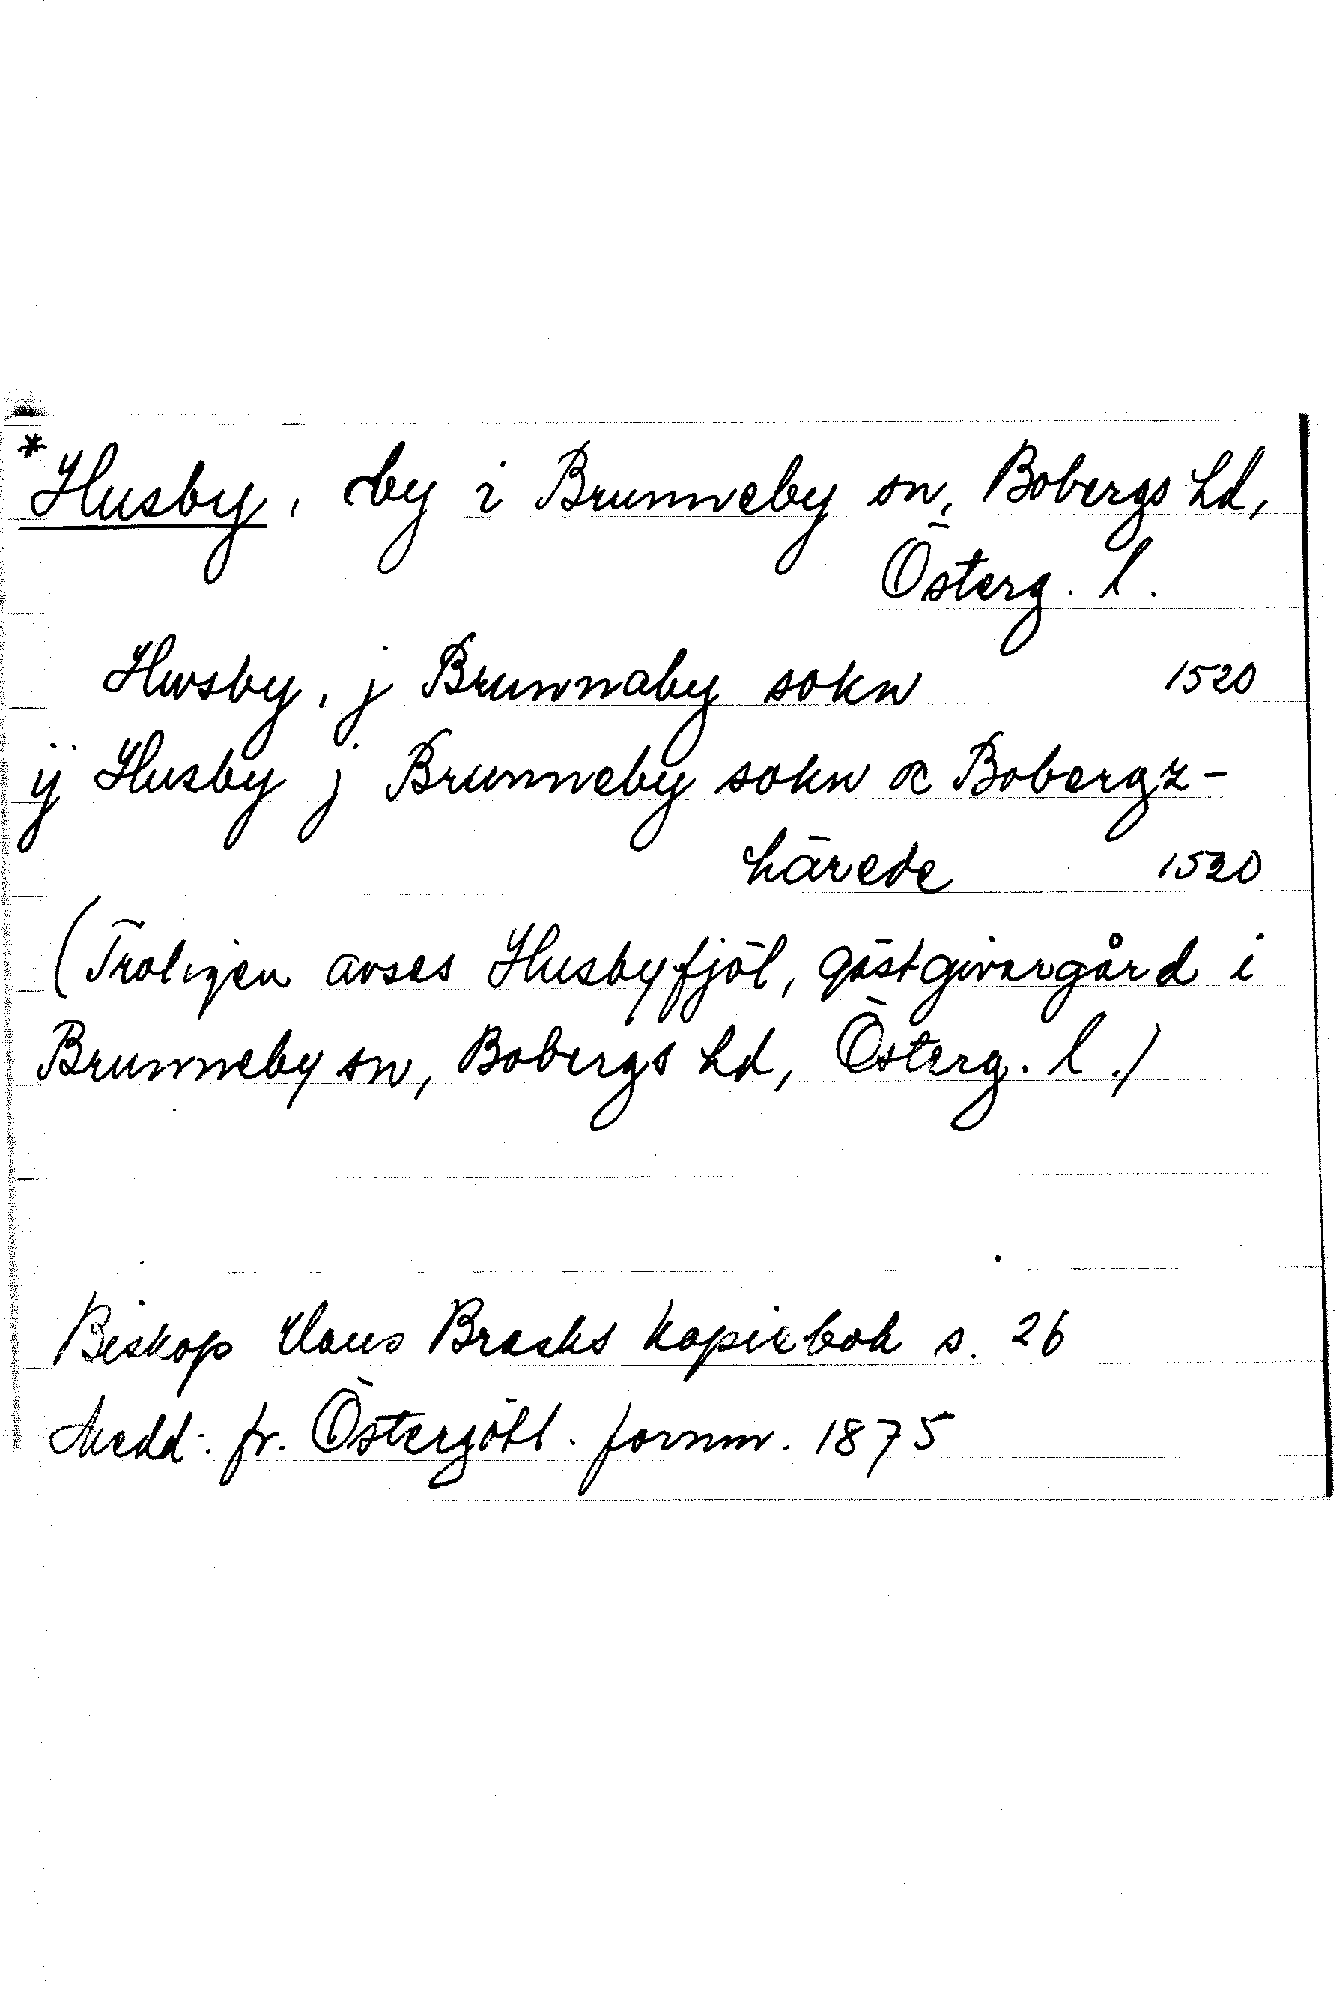 *Husby, by i Brunneby sn, Bobergs hd,
Österg. l.
Hwsby, j Brunnaby sokn 1520
ij Husby j Brunneby sokn oc Bobergz-
härede 1520
(Troligen avses Husbyfjöl, gästgivargård i
Brunneby sn, Bobergs hd, Österg. l.)
Biskop Hans Brasks kopiebok s. 26
Medd. fr. Östergötl. fornm. 1875